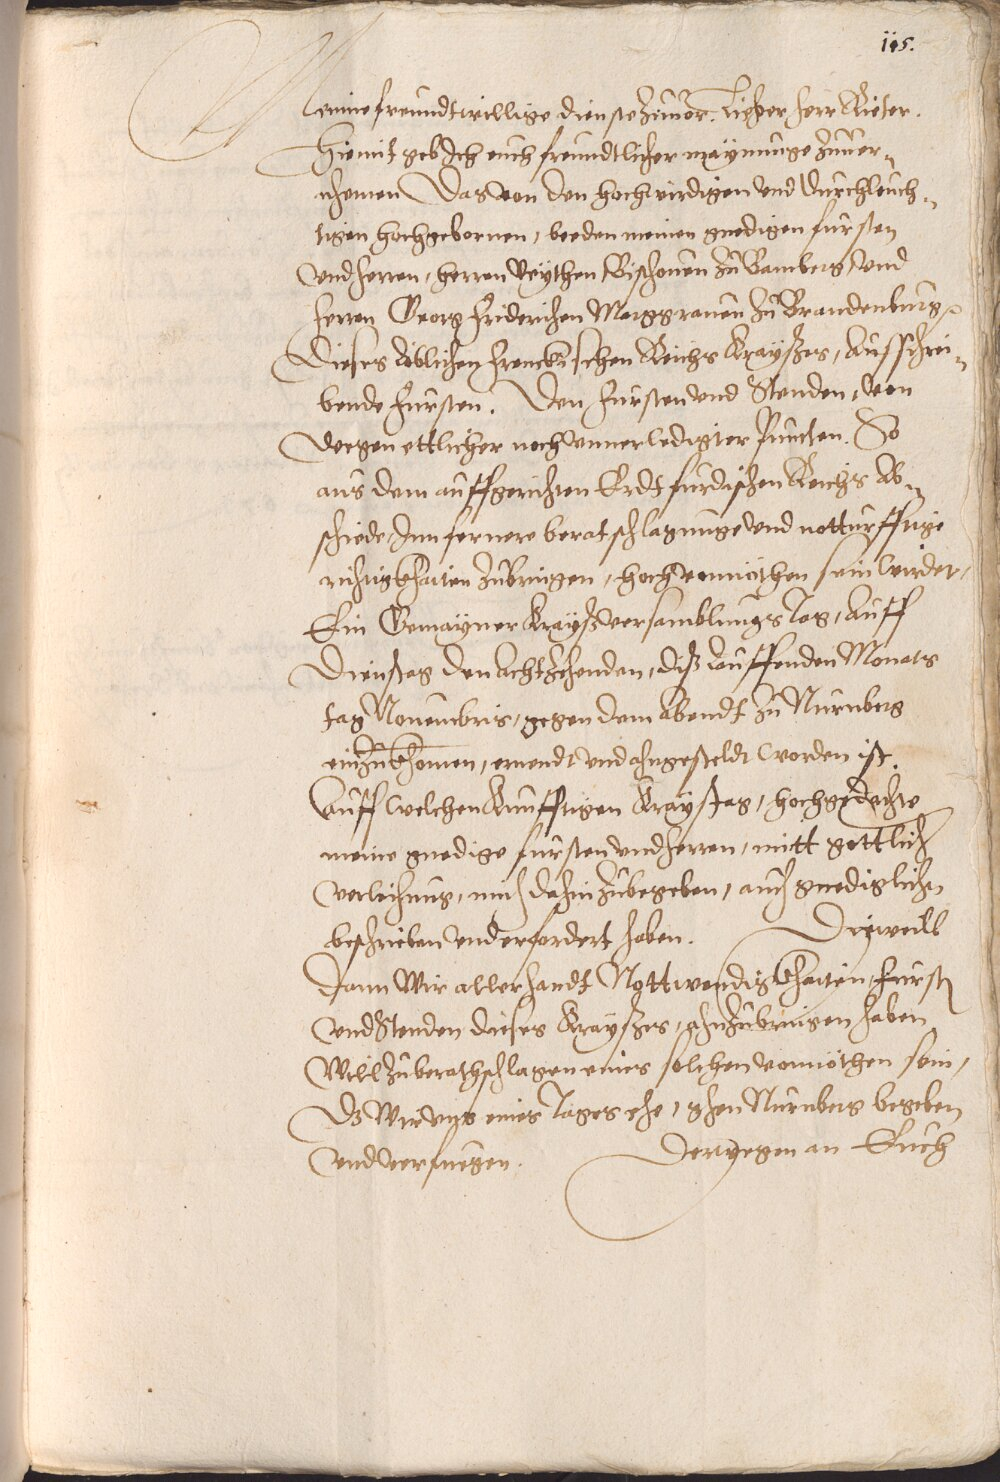 115.
Meine freundtwillige dienste zuuor. Lieber herr Rieter.
Hiemit geb Ich euch freundtlicher maynunge zuuer-
nhemen Das von den hochwirdigen und Durchleuch-
tigen hochgebornen, beeden meinen gnedigen fursten
und herren, herren Veythen Bischouen zu Bamberg, und
herren Georg Friderichen Marggrauen zu Brandenburg
Dieses löblichen Frenckischen Reichs Krayßes, Ausschrei-
bende Fursten. Den Fursten und Stenden, von
wegen ettlicher noch unnerledigter Puncten. So
aus dem auffgerichten Erdtfurdischen Reichs Ab-
schiede, Inn fernere beratschlagunge und notturfftige
richtigkhaiten zubringen, hoch vonnöthen sein wirdet,
Ein Gemayner Krayßversamblungs Tag, Auff
Dienstag den achtzehenden, diß lauffenden Monats
tag Nouembris, gegen dem abendt zu Nurnberg
einzukhomen, ernendt und angesteldt worden ist.
Auff welchen kunfftigen Kraystag, hochgedachte
meine gnedige fursten und herren, mitt gottlicher
verleihung, mich dahin zubegeben, auch gnediglichen
beschrieben und erfordert haben. Dieweill
Dann Wir allerhandt Nottwendigkhaiten, Fursten
und Stenden dieses Krayßes, ahnzubringen haben
Will zuberathschlagen eines solchen vonnöthen sein,
Das Wir uns eines Tages ehe, ghen Nurnberg begeben
und verfuegen. Derwegen an Euch